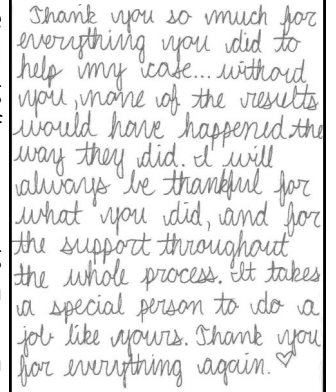 Thank you so much for
everything you did to
help my case... without
you, none of the results
would have happened the
way they did. I will
always be thankful for
what you did, and for
the support throughout
the whole process. It takes
a special person to do a
job like yours. Thank you
for everything again. ♡